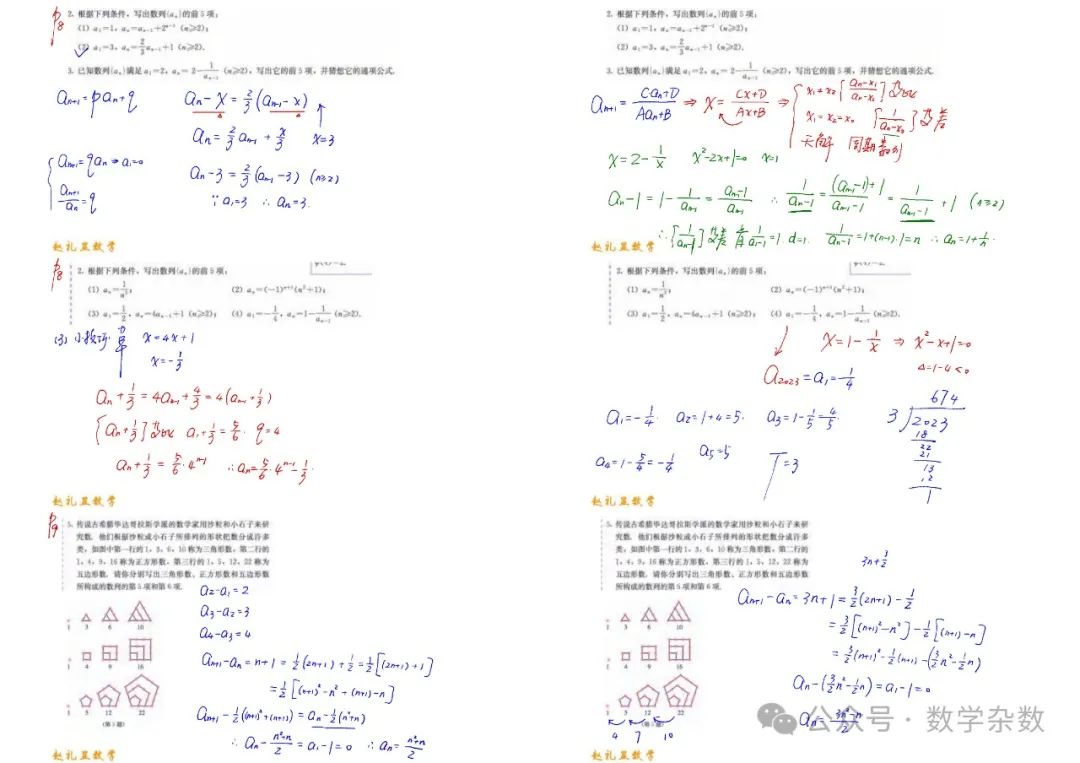 P8
2. 根据下列条件，写出数列{aₙ}的前5项：
(1) a₁=1，aₙ=aₙ₋₁+2ⁿ⁻¹ (n≥2)；
(2) a₁=3，aₙ=2/3aₙ₋₁+1 (n≥2).
3. 已知数列{aₙ}满足a₁=2，aₙ=2-1/aₙ₋₁ (n≥2)，写出它的前5项，并猜想它的通项公式.
aₙ₊₁=paₙ+q
aₙ-x=2/3(aₙ₋₁-x)
aₙ=2/3aₙ₋₁+x/3 x=3
aₙ₊₁=qaₙ⇒a₁≠0
aₙ₊₁/aₙ=q
aₙ-3=2/3(aₙ₋₁-3) (n≥2)
∵a₁=3 ∴aₙ=3.
赵礼显数学
2. 根据下列条件，写出数列{aₙ}的前5项：
(1) a₁=1，aₙ=aₙ₋₁+2ⁿ⁻¹ (n≥2)；
(2) a₁=3，aₙ=2/3aₙ₋₁+1 (n≥2).
3. 已知数列{aₙ}满足a₁=2，aₙ=2-1/aₙ₋₁ (n≥2)，写出它的前5项，并猜想它的通项公式.
aₙ₊₁=(Caₙ+D)/(Aaₙ+B) ⇒ x=(Cx+D)/(Ax+B) ⇒
x₁≠x₂ {(aₙ-x₁)/(aₙ-x₂)} 等比
x₁=x₂=x₀ {1/(aₙ-x₀)} 等差
无解 周期数列
x=2-1/x x²-2x+1=0 x=1
aₙ-1=1-1/aₙ₋₁=(aₙ₋₁-1)/aₙ₋₁ ∴1/(aₙ-1)=((aₙ₋₁-1)+1)/(aₙ₋₁-1)=1/(aₙ₋₁-1)+1 (n≥2)
∴{1/(aₙ-1)}等差 首1/(a₁-1)=1 d=1. 1/(aₙ-1)=1+(n-1)·1=n ∴aₙ=1+1/n.
赵礼显数学
P8
2. 根据下列条件，写出数列{aₙ}的前5项：
(1) aₙ=1/n²；
(2) aₙ=(-1)ⁿ⁺¹(n²+1)；
(3) a₁=1/2，aₙ=4aₙ₋₁+1 (n≥2)；
(4) a₁=-1/4，aₙ=1-1/aₙ₋₁ (n≥2).
(3) x=4x+1
x=-1/3
aₙ+1/3=4aₙ₋₁+4/3=4(aₙ₋₁+1/3)
{aₙ+1/3}等比 a₁+1/3=5/6. q=4
aₙ+1/3=5/6·4ⁿ⁻¹ ∴aₙ=5/6·4ⁿ⁻¹-1/3.
赵礼显数学
2. 根据下列条件，写出数列{aₙ}的前5项：
(1) aₙ=1/n²；
(2) aₙ=(-1)ⁿ⁺¹(n²+1)；
(3) a₁=1/2，aₙ=4aₙ₋₁+1 (n≥2)；
(4) a₁=-1/4，aₙ=1-1/aₙ₋₁ (n≥2).
x=1-1/x ⇒ x²-x+1=0
Δ=1-4<0
a₂₀₂₃=a₁=-1/4
a₁=-1/4. a₂=1+4=5. a₃=1-1/5=4/5.
a₄=1-5/4=-1/4 a₅=5 T=3
674
3 2023
18
22
21
13
12
1
赵礼显数学
P9
5. 传说古希腊毕达哥拉斯学派的数学家用沙粒和小石子来研
究数. 他们根据沙粒或小石子所排列的形状把数分成许多
类，如图中第一行的1，3，6，10称为三角形数，第二行的
1，4，9，16称为正方形数，第三行的1，5，12，22称为
五边形数. 请你分别写出三角形数、正方形数和五边形数
所构成的数列的第5项和第6项.
a₂-a₁=2
a₃-a₂=3
a₄-a₃=4
1 3 6 10
1 4 9 16
1 5 12 22
(第5题)
aₙ₊₁-aₙ=n+1=1/2(2n+1)+1/2=1/2[(2n+1)+1]
=1/2[(n+1)²-n²+(n+1)-n]
aₙ₊₁-1/2((n+1)²+(n+1))=aₙ-1/2(n²+n)
∴aₙ-(n²+n)/2=a₁-1=0 ∴aₙ=(n²+n)/2
赵礼显数学
5. 传说古希腊毕达哥拉斯学派的数学家用沙粒和小石子来研
究数. 他们根据沙粒或小石子所排列的形状把数分成许多
类，如图中第一行的1，3，6，10称为三角形数，第二行的
1，4，9，16称为正方形数，第三行的1，5，12，22称为
五边形数. 请你分别写出三角形数、正方形数和五边形数
所构成的数列的第5项和第6项.
3n+3/2
1 3 6 10
1 4 9 16
1 5 12 22
4 7 10
aₙ₊₁-aₙ=3n+1=3/2(2n+1)-1/2
=3/2[(n+1)²-n²]-1/2[(n+1)-n]
=3/2(n+1)²-1/2(n+1)-(3/2n²-1/2n)
aₙ-(3/2n²-1/2n)=a₁-1=0
aₙ=(3n²-n)/2
公众号·数学杂数
赵礼显数学